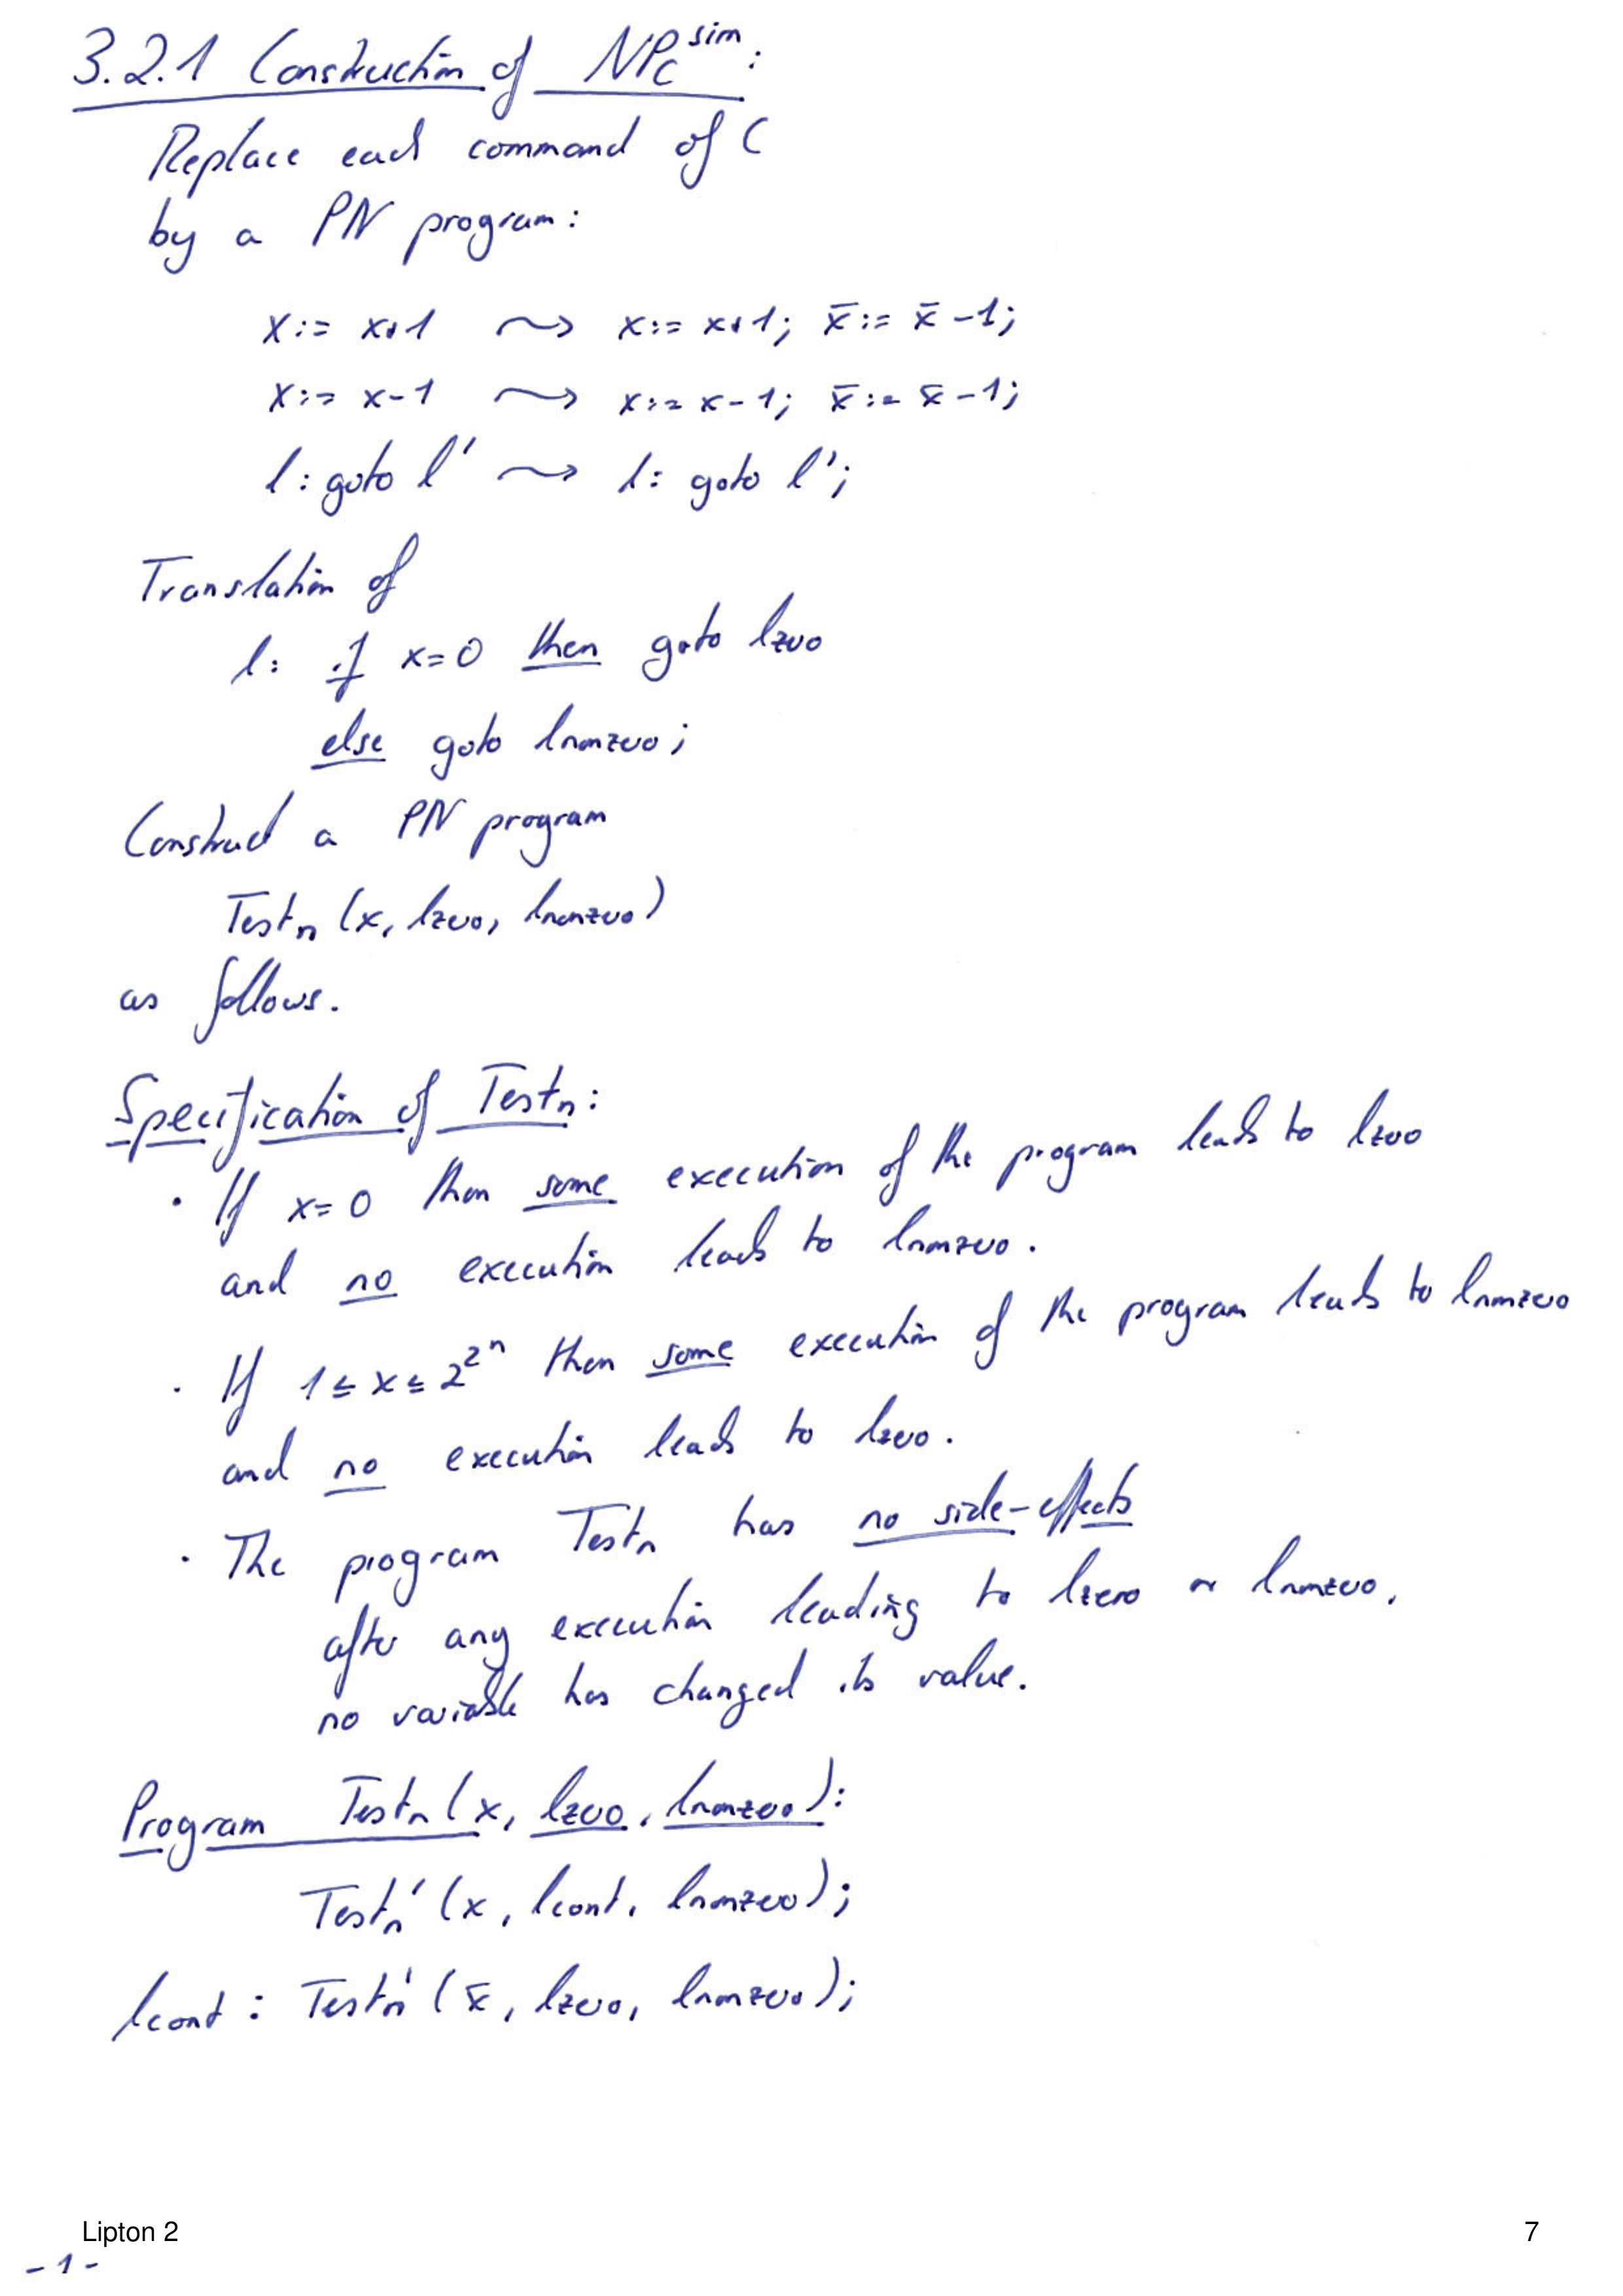 3.2.1 Construction of NP_C^sim:
Replace each command of C
by a PN program:
x:= x+1 ⤳ x:= x+1; x̄:= x̄-1;
x:= x-1 ⤳ x:= x-1; x̄:= x̄-1;
l: goto l' ⤳ l: goto l';
Translation of
l: if x=0 then goto lzero
else goto lnonzero;
Construct a PN program
Test_n (x, lzero, lnonzero)
as follows.
Specification of Test_n:
· If x=0 then some execution of the program leads to lzero
and no execution leads to lnonzero.
· If 1≤x≤2^2^n then some execution of the program leads to lnonzero
and no execution leads to lzero.
· The program Test_n has no side-effects
after any execution leading to lzero or lnonzero,
no variable has changed its value.
Program Test_n (x, lzero, lnonzero):
Test_n' (x, lcont, lnonzero);
lcont: Test_n' (x̄, lzero, lnonzero);
Lipton 2
7
-1-